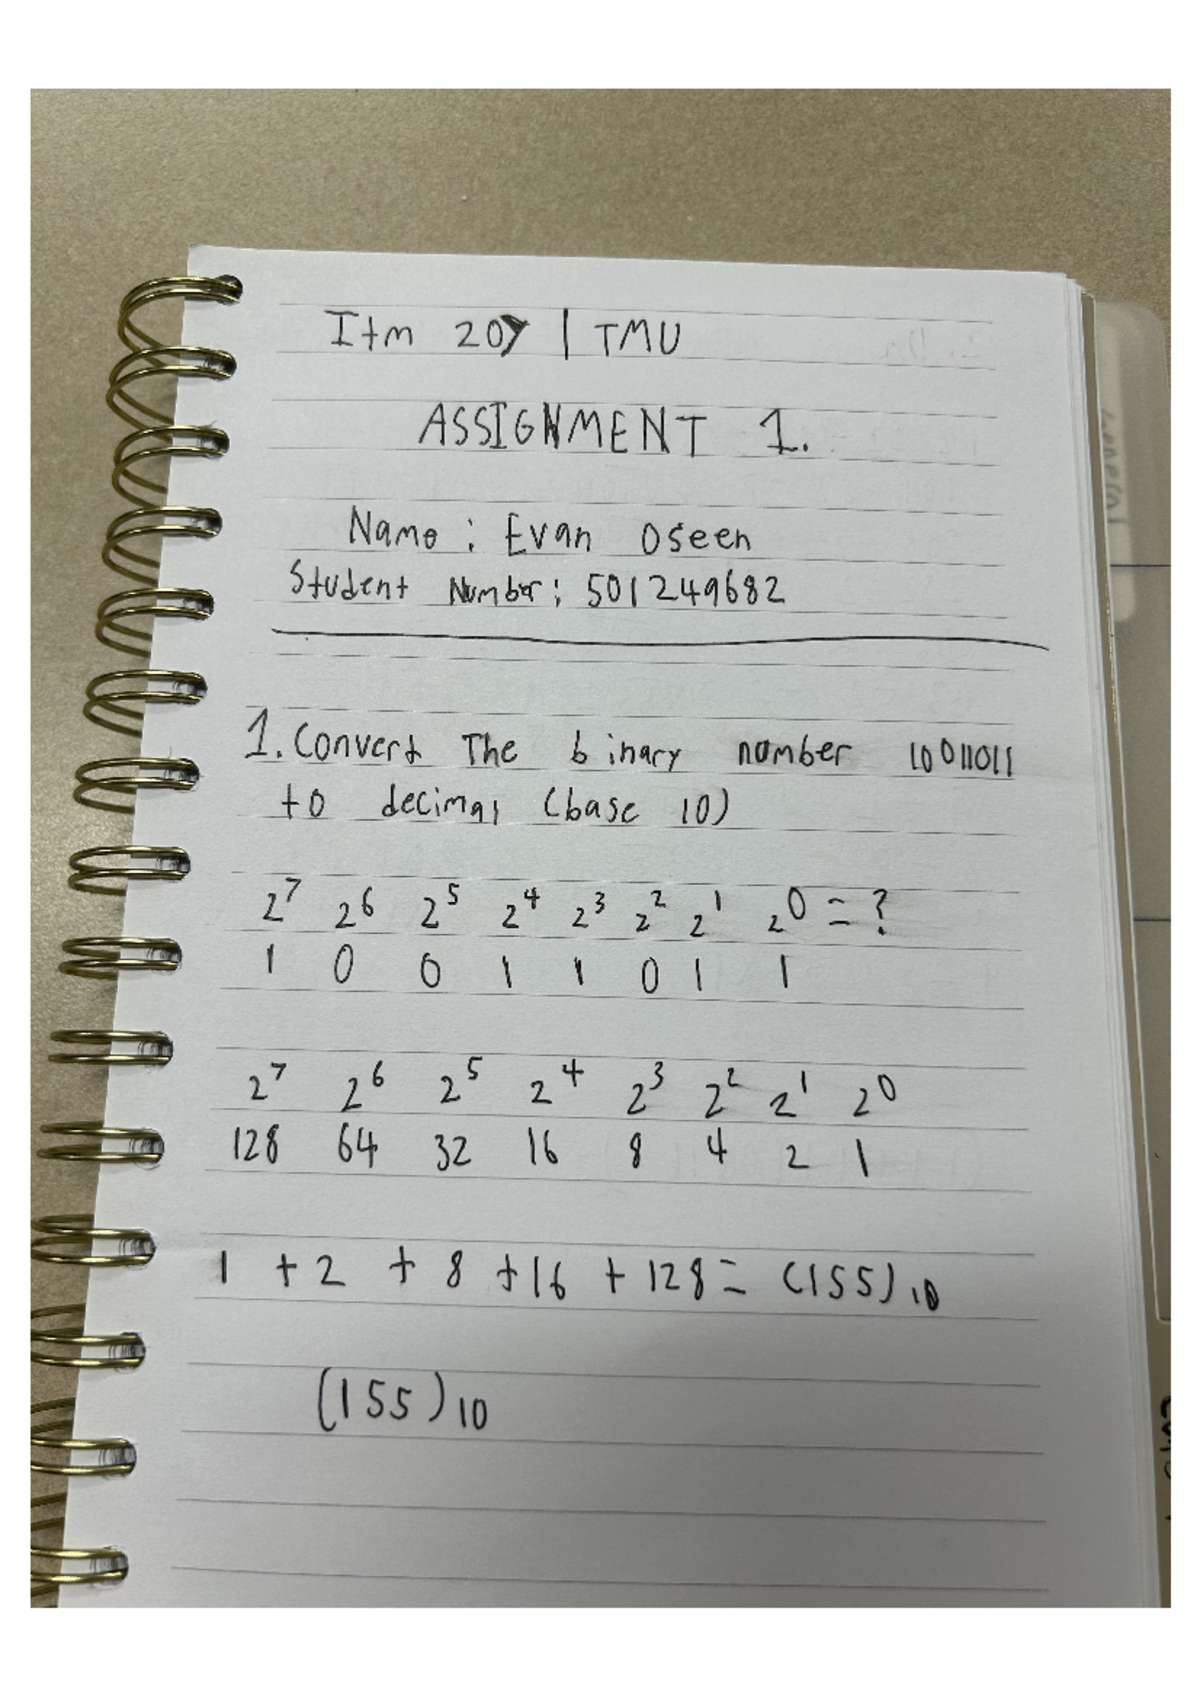 Itm 207 | TMU
ASSIGNMENT 1.
Name : Evan Oseen
Student Number : 501249682
1. Convert The binary number 10011011
to decimal (base 10)
2⁷ 2⁶ 2⁵ 2⁴ 2³ 2² 2¹ 2⁰ = ?
1 0 0 1 1 0 1 1
2⁷ 2⁶ 2⁵ 2⁴ 2³ 2² 2¹ 2⁰
128 64 32 16 8 4 2 1
1 + 2 + 8 + 16 + 128 = (155)₁₀
(155)₁₀